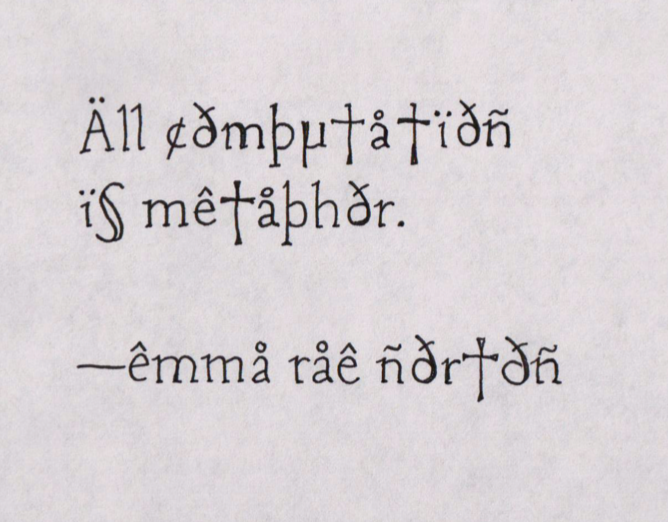 Äll ¢ðmþµ†å†ïðñ
ï§ mê†åþhðr.
—êmmå råê ñðr†ðñ